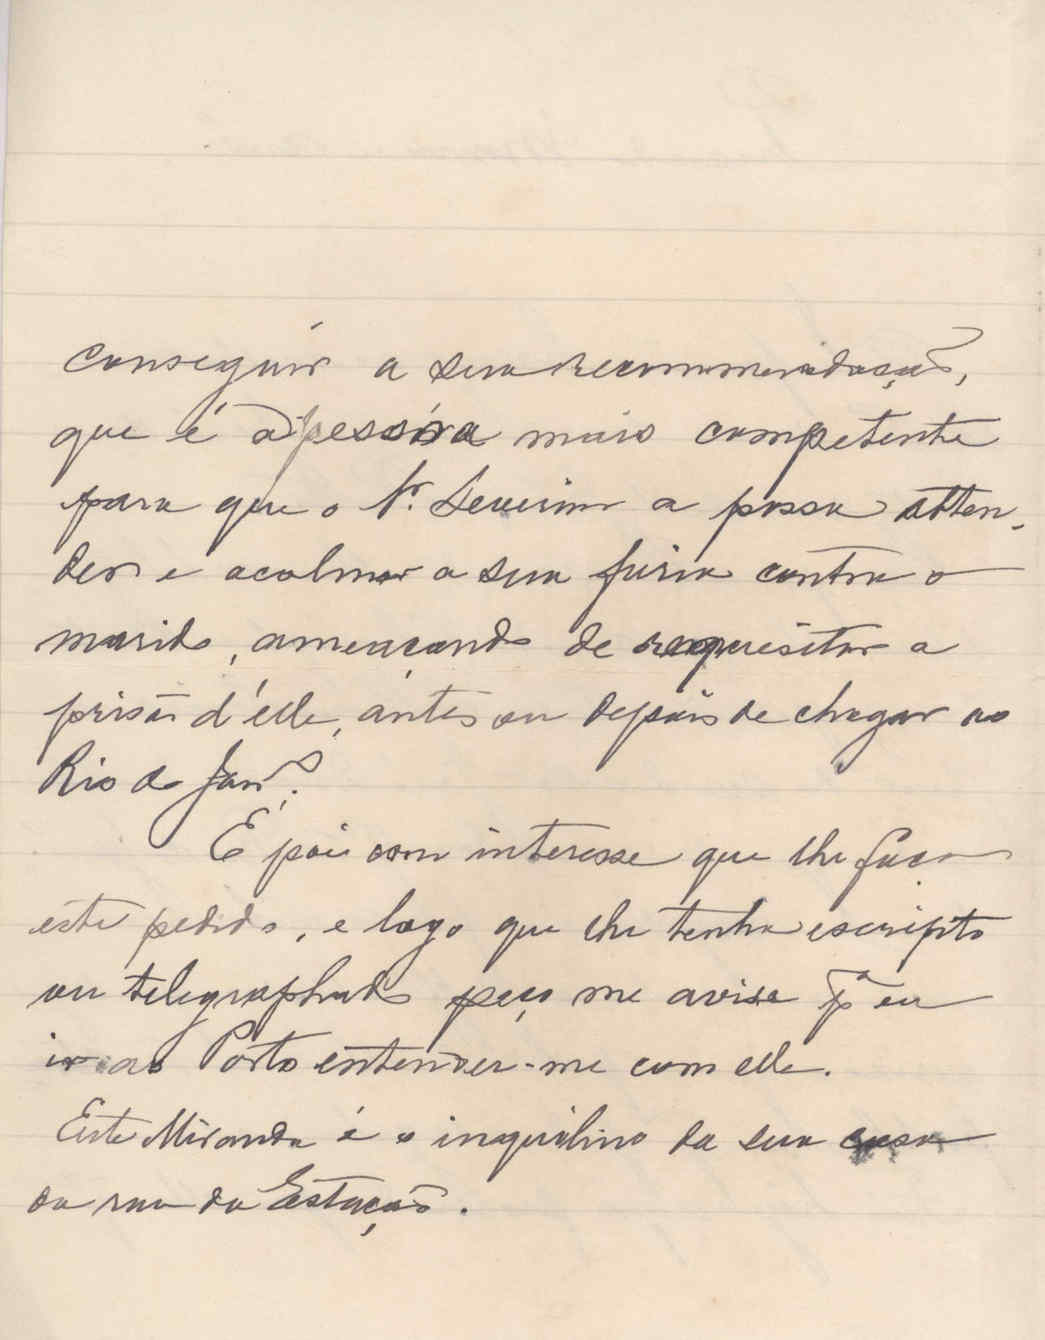 conseguir a sua recommendação,
que é a pessôa mais competente
para que o Sr. Severino a possa atten-
der e acalmar a sua furia contra o
marido, ameaçando de requisitar a
prisão d'élle, ántes ou depois de chegar ao
Rio de Janro.
É pois com interesse que lhe faço
este pedido, e logo que lhe tenha escripto
ou telegraphado peço me avise pa eu
ir ao Porto entender-me com elle.
Este Miranda é o inquilino da sua casa
da rua da Estação.